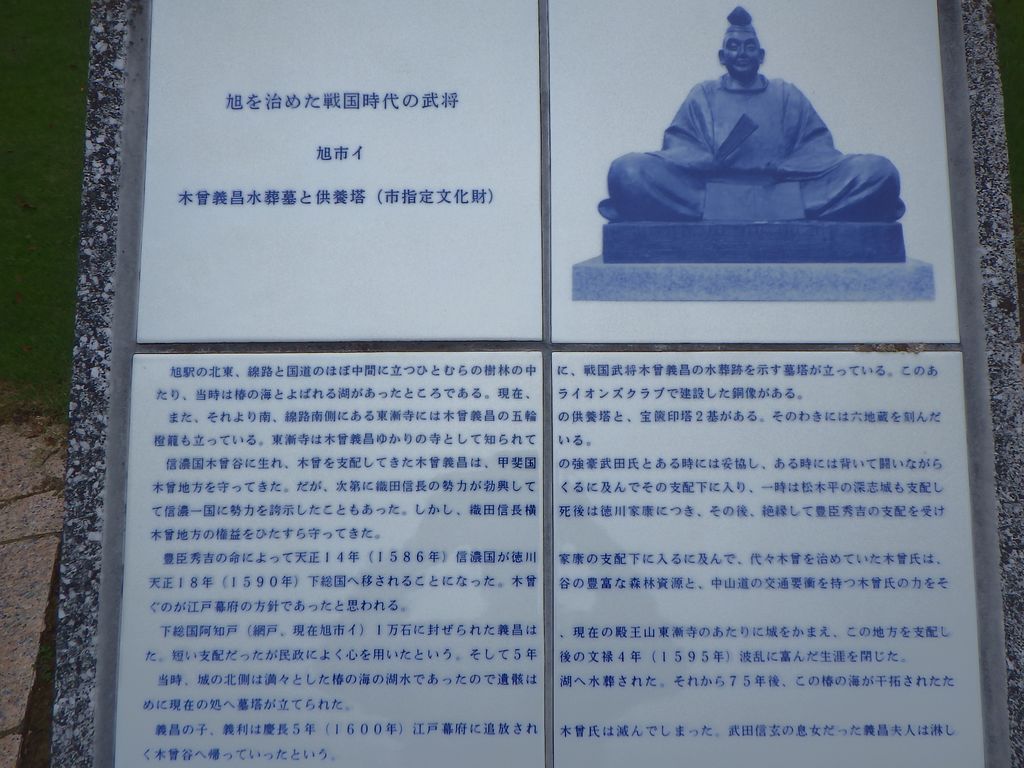 旭を治めた戦国時代の武将
旭市イ
木曾義昌水葬墓と供養塔（市指定文化財）
旭駅の北東、線路と国道のほぼ中間に立つひとむらの樹林の中に、戦国武将木曾義昌の水葬跡を示す墓塔が立っている。このあ
たり、当時は椿の海とよばれる湖があったところである。現在、ライオンズクラブで建設した銅像がある。
また、それより南、線路南側にある東漸寺には木曾義昌の五輪の供養塔と、宝篋印塔２基がある。そのわきには六地蔵を刻んだ
燈籠も立っている。東漸寺は木曾義昌ゆかりの寺として知られている。
信濃国木曾谷に生れ、木曾を支配してきた木曾義昌は、甲斐国の強豪武田氏とある時には妥協し、ある時には背いて闘いながら
木曾地方を守ってきた。だが、次第に織田信長の勢力が勃興してくるに及んでその支配下に入り、一時は松木平の深志城も支配し
て信濃一国に勢力を誇示したこともあった。しかし、織田信長横死後は徳川家康につき、その後、絶縁して豊臣秀吉の支配を受け
木曾地方の権益をひたすら守ってきた。
豊臣秀吉の命によって天正１４年（１５８６年）信濃国が徳川家康の支配下に入るに及んで、代々木曾を治めていた木曾氏は、
天正１８年（１５９０年）下総国へ移されることになった。木曾谷の豊富な森林資源と、中山道の交通要衝を持つ木曾氏の力をそ
ぐのが江戸幕府の方針であったと思われる。
下総国阿知戸（網戸、現在旭市イ）１万石に封ぜられた義昌は、現在の殿王山東漸寺のあたりに城をかまえ、この地方を支配し
た。短い支配だったが民政によく心を用いたという。そして５年後の文禄４年（１５９５年）波乱に富んだ生涯を閉じた。
当時、城の北側は満々とした椿の海の湖水であったので遺骸は湖へ水葬された。それから７５年後、この椿の海が干拓されたた
めに現在の処へ墓塔が立てられた。
義昌の子、義利は慶長５年（１６００年）江戸幕府に追放され木曾氏は滅んでしまった。武田信玄の息女だった義昌夫人は淋し
く木曾谷へ帰っていったという。